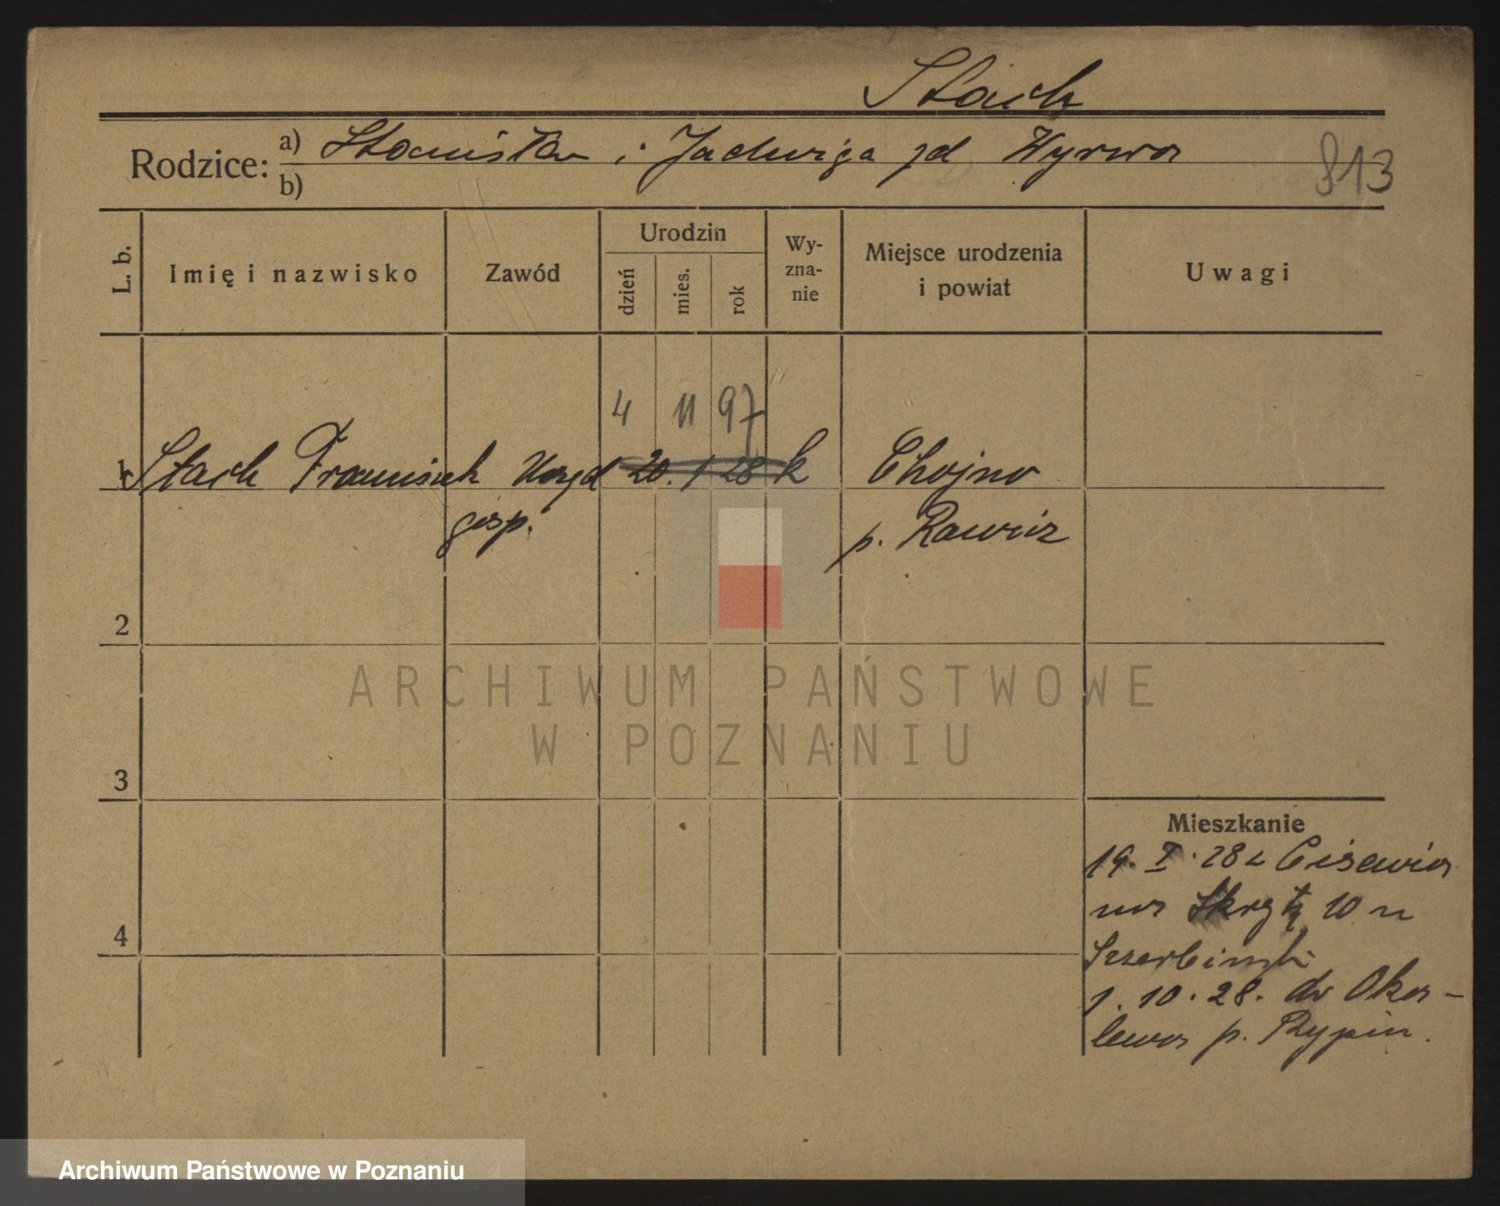 Stach
Rodzice: a) Stanisław i Jadwiga zd Wyrwa
b)
813
L. b.
Imię i nazwisko
Zawód
Urodzin
dzień
mies.
rok
Wy-
zna-
nie
Miejsce urodzenia
i powiat
Uwagi
4 11 97
1 Stach Franciszek Urzęd 20. 1 28 k Chojno
gosp. p. Rawicz
2
ARCHIWUM PAŃSTWOWE
W POZNANIU
3
Mieszkanie
19. I. 28 z
na 10 u
4
1. 10. 28. do Oka-
lewa p. Rypin.
Archiwum Państwowe w Poznaniu